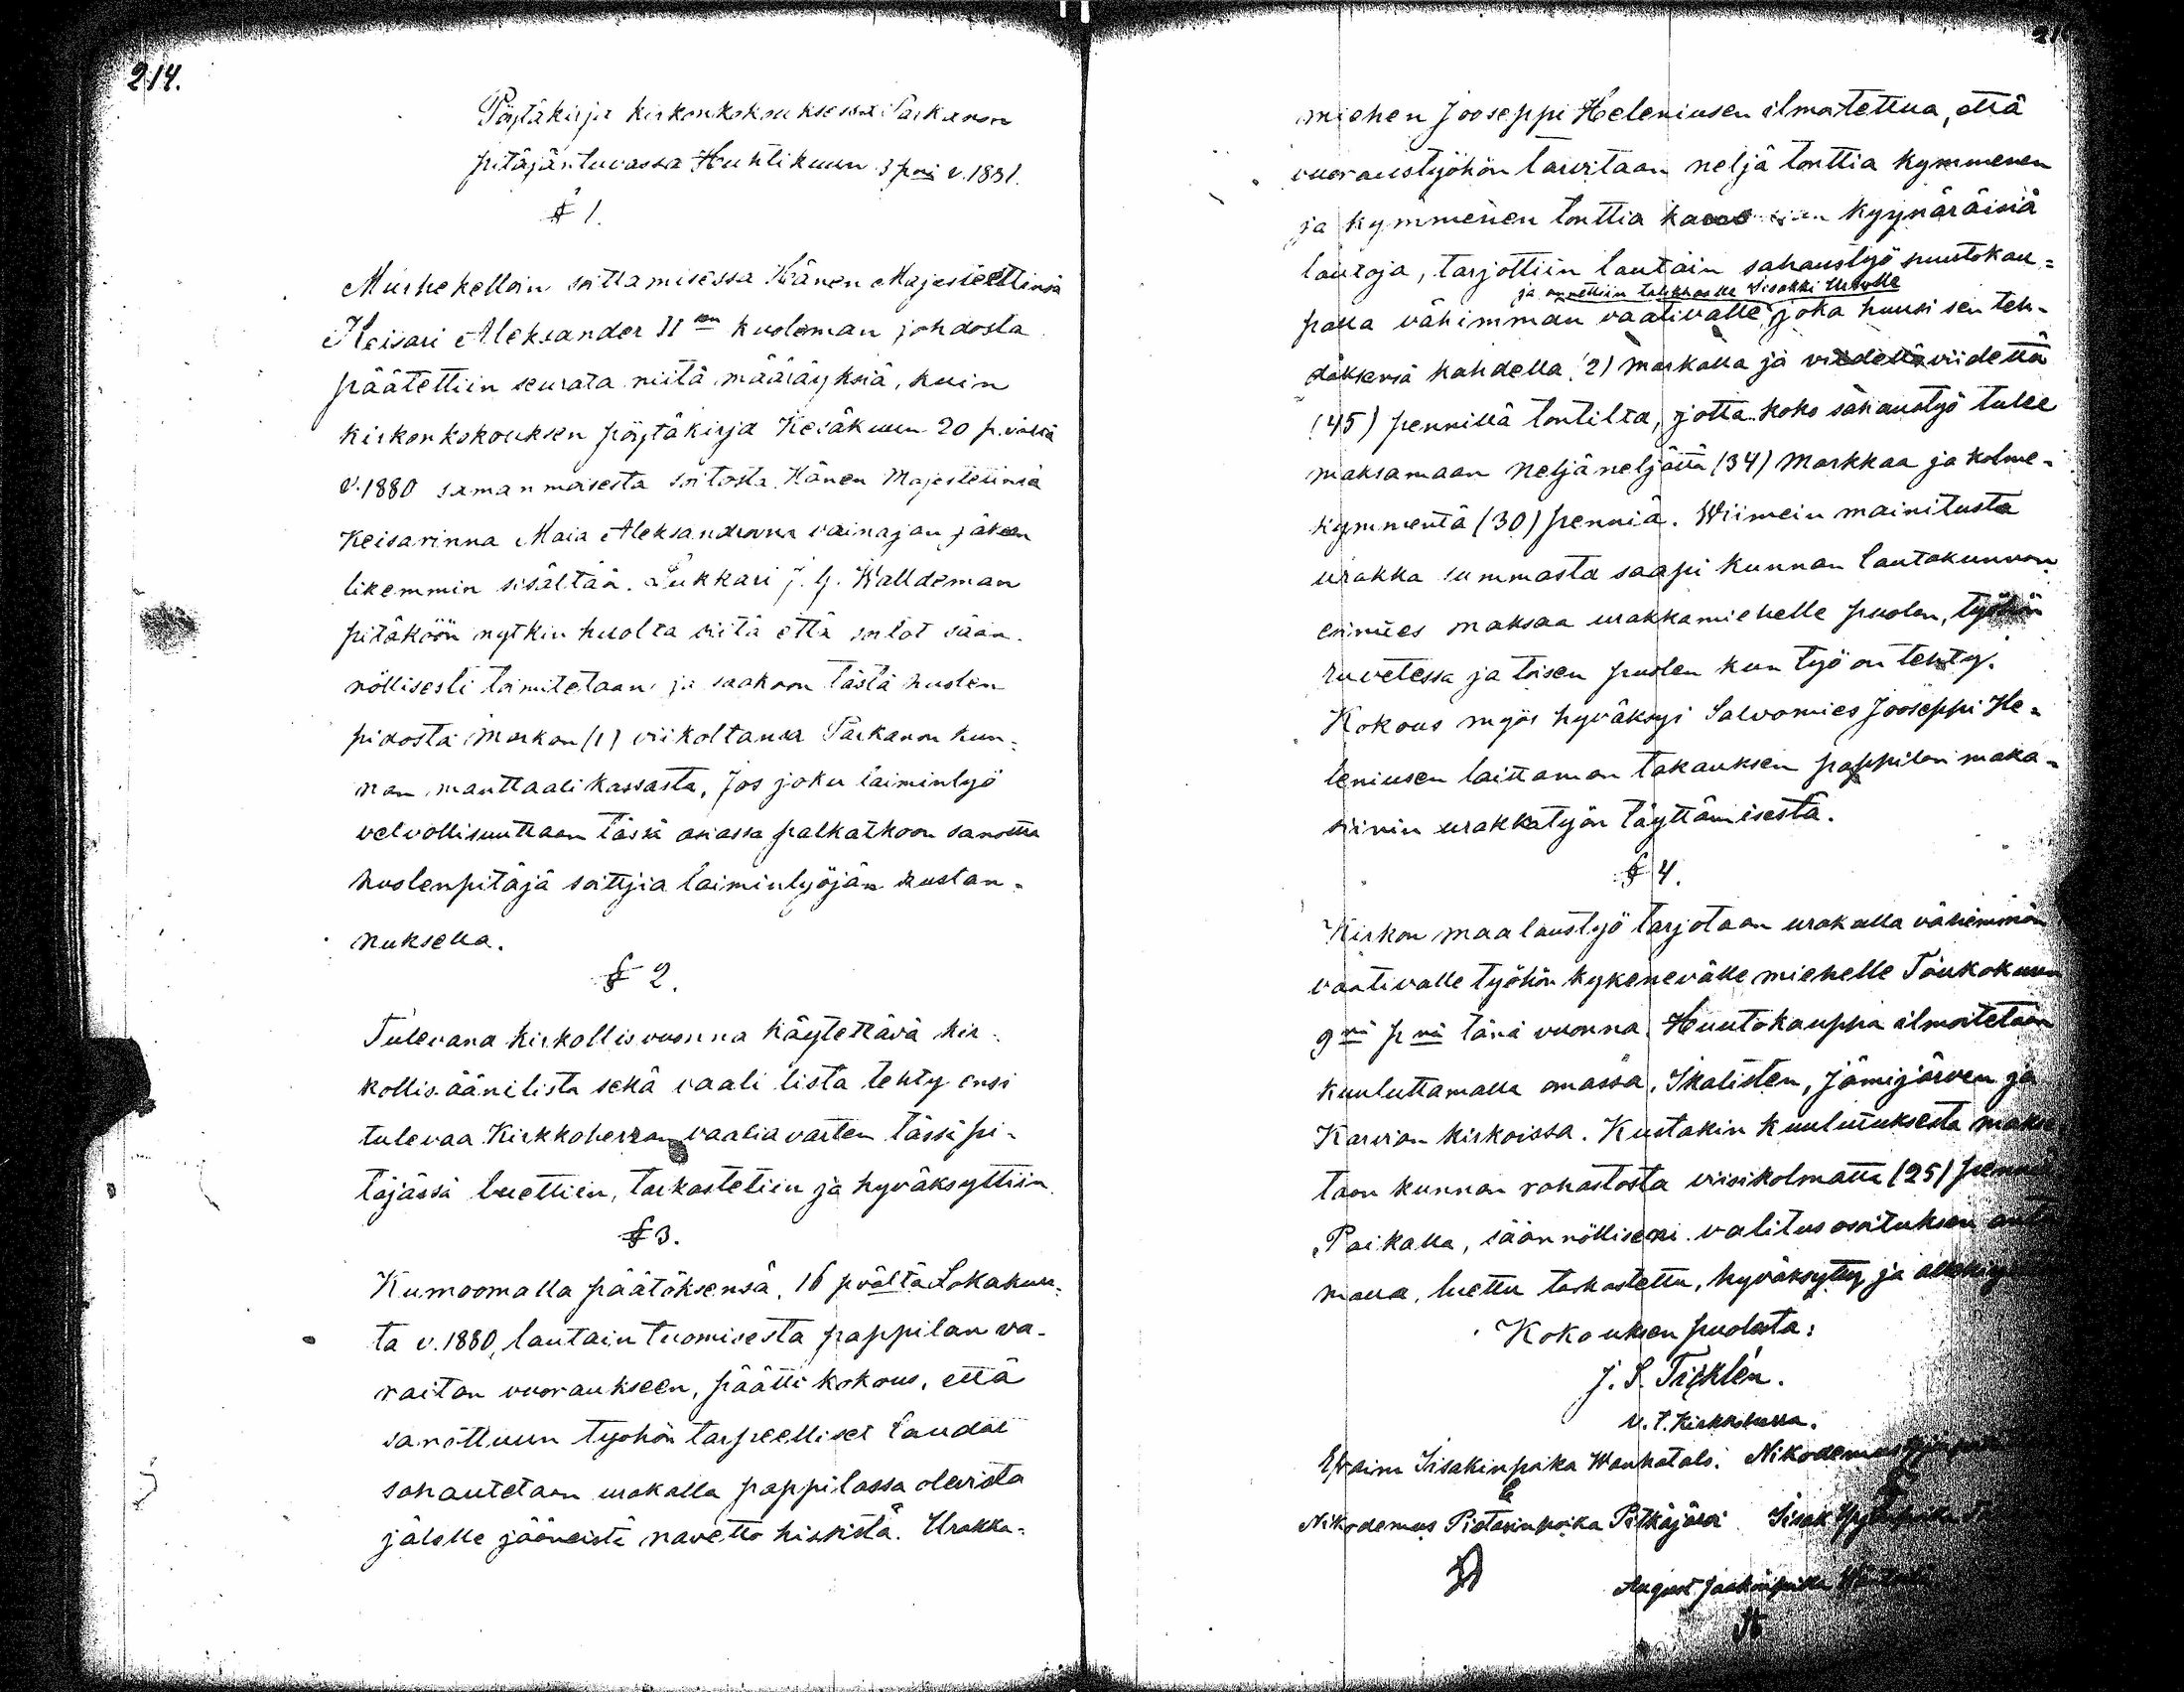 214.
Pöytäkirja kirkonkokouksessa Parkanon
pitäjäntuvassa Huhtikuun 3 pnä v. 1881.
§ 1.
Murhekelloin soittamisessa Hänen Majesteettinsa
Keisari Aleksander II en kuoleman johdosta
päätettiin seurata niitä määräyksiä, kuin
kirkonkokouksen pöytäkirja Kesäkuun 20 p. vältä
v. 1880 samanmoisesta soitosta Hänen Majesteetinsä
Keisarinna Maia Aleksandrovna vainajan jäkeen
likemmin sisältää. Lukkari J. G. Walldeman
pitäköön nytkin huolta siitä että soitot sään-
nöllisesti toimitetaan ja saakoon tästä huolen
pidosta Markan (1) viikoltansa Parkanon kun-
nan manttaalikassasta, Jos joku laiminlyö
velvollisuuttaan tässä asiassa palkatkoon sanottu
huolenpitäjä soittjia laiminlyöjän kustan-
nuksella.
§ 2.
Tulevana kirkollisvuonna käytettävä kir-
kollis-äänilista sekä vaali lista tehty ensi
tulevaa Kirkkoherran vaalia varten tässä pi-
täjässä luettiin, tarkastetiin ja hyväksyttiin.
§ 3.
Kumoomalla päätöksensä, 16 pvältä Lokakuu-
ta v. 1880, lautain tuomisesta pappilan va-
raitan vuoraukseen, päätti kokous, että
sanottuun tyohön tarpeelliset laudat
sahautetaan urakalla pappilassa olevista
jälelle jääneistä navetto hirsistä. Urakka-
miehen Jooseppi Heleniusen ilmotettua, että
vuoraustyöhön tarvitaan neljä tonttia kymmenen
ja kymmenen tonttia kyynäräisiä
lautoja, tarjottiin lautain sahaustyö huutokau-
ja annettiin Iisakki
palla vähimmän vaativalle, joka huusi sen teh-
däksensä kahdella (2) markalla ja viidellä viidettä
(45) pennillä tontilta, jotta koko sahaustyö tulee
maksamaan neljäneljättä (34) Markkaa ja kolme-
kymmentä (30) penniä. Wiimein mainitusta
urakka summasta saapi kunnan lautakunnan
esimies maksaa urakkamiehelle puolen, työhön
ruvetessa ja toisen puolen kun työ on tehty.
Kokous myös hyväksyi Salvomies Jooseppi He-
leniusen laittaman takauksen pappilan maka-
siinin urakkatyön täyttämisestä.
§ 4.
Kirkon maalaustyö tarjotaan urakalla vähimmän
vaativalle työhön kykenevälle miehelle Toukokuun
9 nä p nä tänä vuonna. Huutokauppa ilmoitetaan
kuuluttamalla omassa, Ikalisten, Jämijärven ja
Karvian kirkoissa. Kustakin kuulutuksesta makse
taan kunnan rahastosta viisikolmatta (25) penniä
Paikalla, säännöllisen valitusosoituksen anta
malla, luettu tarkastettu, hyväksytty ja
Kokouksen puolesta:
J. S. Tichlén.
v. t. Kirkkoherra.
Efraim Iisakinpoika Wankatalo. Nikodemus
Nikodemus Pietarinpoika Pitkäjärvi Iisak
August Jaakonpoika